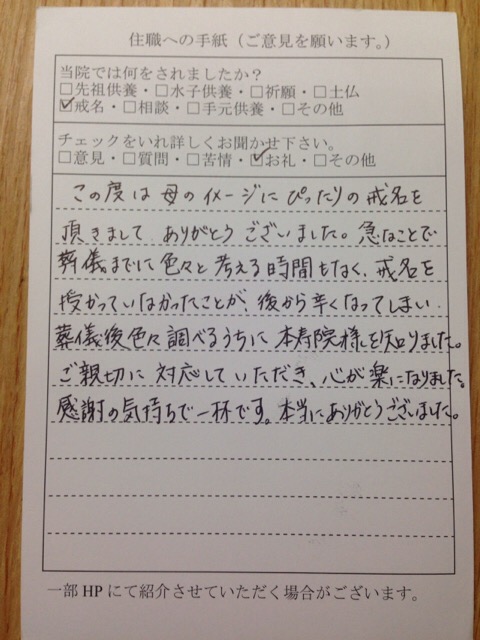 住職への手紙（ご意見を願います。）
当院では何をされましたか？
□先祖供養・□水子供養・□祈願・□土仏
☑戒名・□相談・□手元供養・□その他
チェックをいれ詳しくお聞かせ下さい。
□意見・□質問・□苦情・☑お礼・□その他
この度は母のイメージにぴったりの戒名を
頂きまして ありがとうございました。急なことで
葬儀までに色々と考える時間もなく、戒名を
授かっていなかったことが、後から辛くなってしまい
葬儀後色々調べるうちに本寿院様を知りました。
ご親切に対応していただき、心が楽になりました。
感謝の気持ちで一杯です。本当にありがとうございました。
一部HPにて紹介させていただく場合がございます。